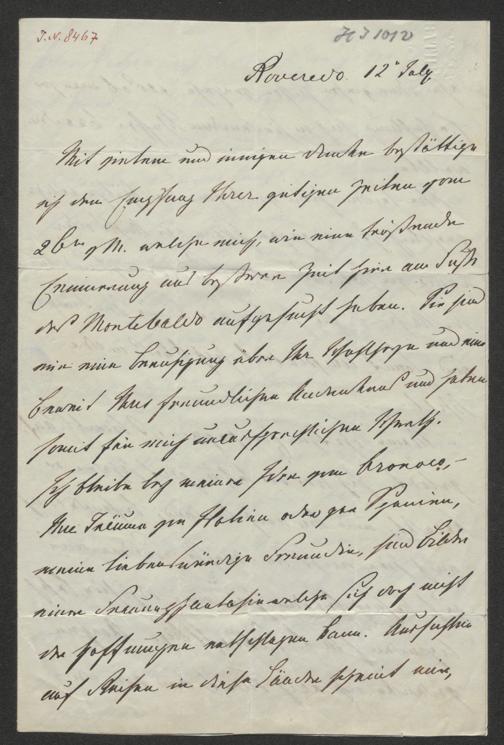 J.N. 8467
H I 1012
Roveredo 12t July
Mit vielem und innigen Danke bestättige
ich den Empfang Ihrer gütigen Zeilen vom
26ten v M. welche mich, wie eine tröstende
Erinnerung aus besserer Zeit hier am Fuße
des Montebaldo aufgesucht haben. Sie sind
mir eine Beruhigung über Ihr und ein
Beweis Ihres freundlichen Andenkens und haben
somit für mich unaussprechlichen Werth.
Ich bleibe bey meiner Idee vom
Ihre Träume von Italien oder von Spanien,
meine liebenswürdige Freundin, sind Bilder
einer welche sich doch nicht
der Hoffnungen entschlagen kann. Aussichten
auf Reisen in diese Länder scheint mir,